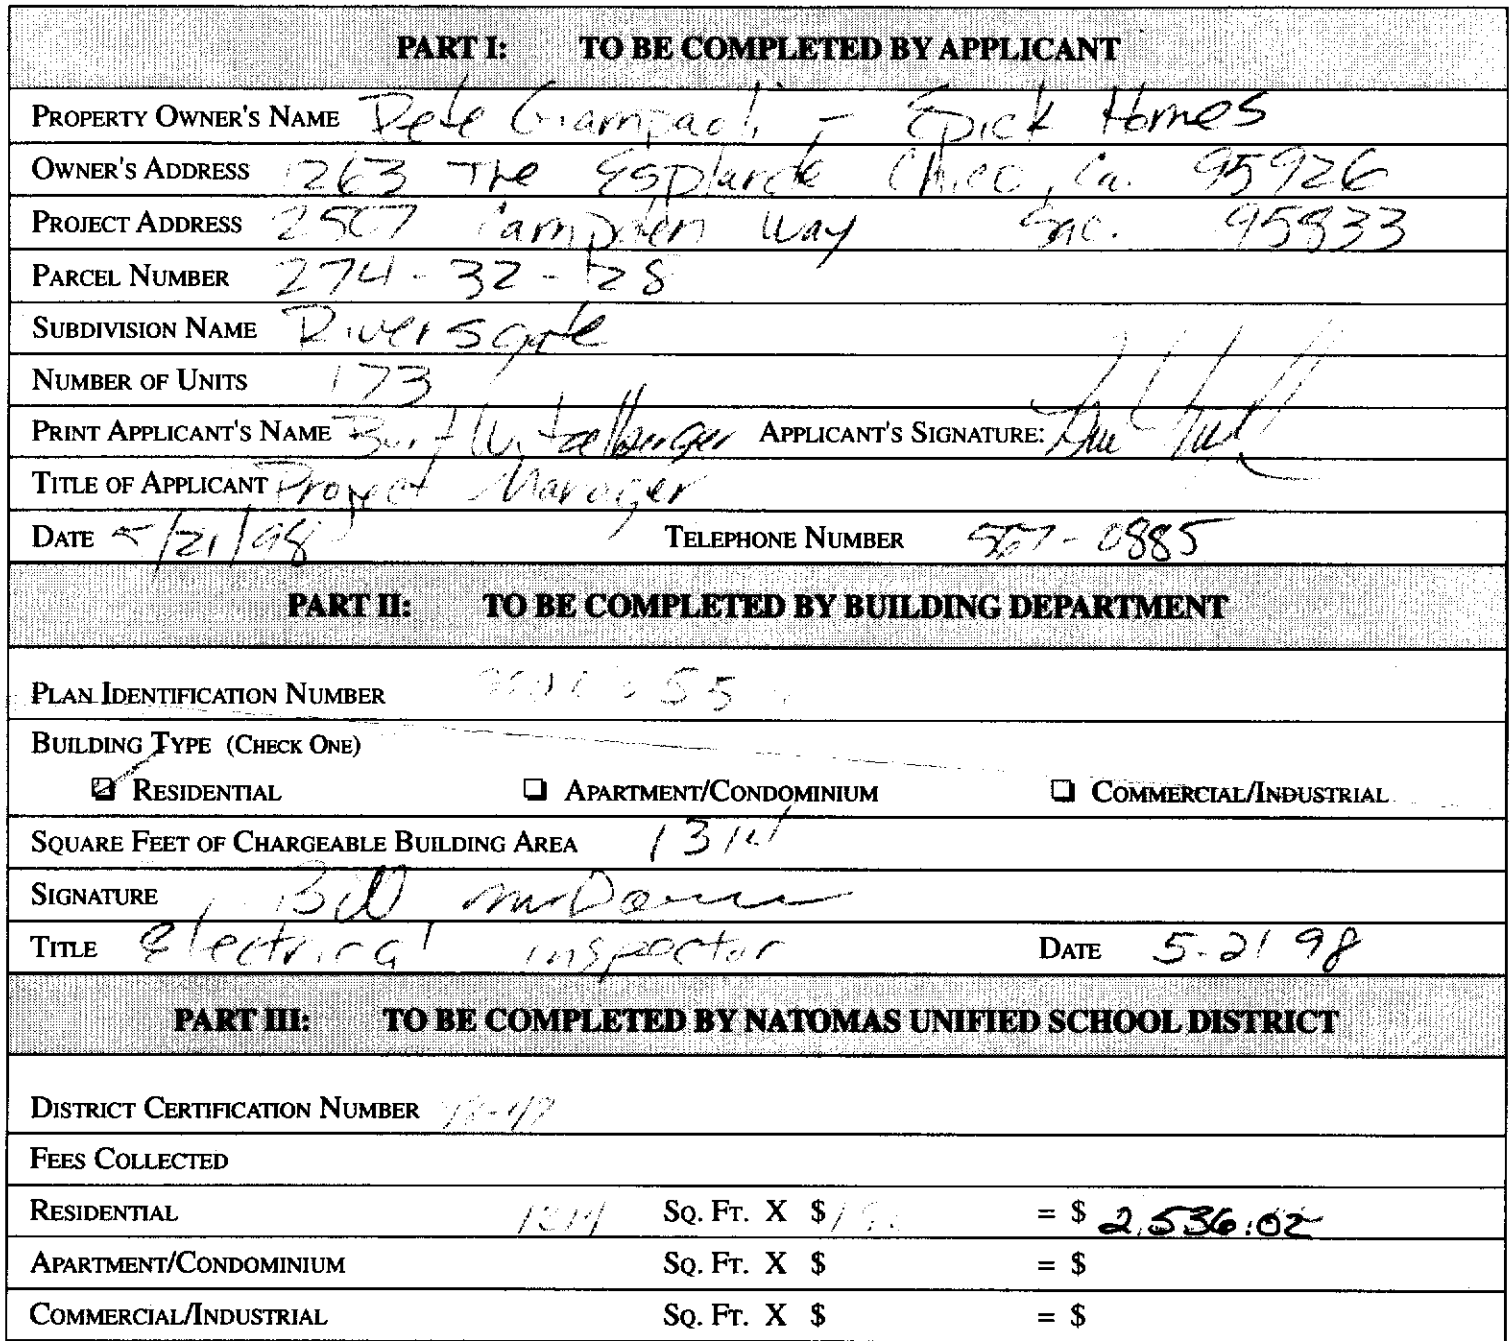 PART I: TO BE COMPLETED BY APPLICANT
PROPERTY OWNER'S NAME Pete Giampaoli - Epick Homes
OWNER'S ADDRESS 1263 The Esplande Chico, Ca. 95926
PROJECT ADDRESS 2507 Way Sac. 95833
PARCEL NUMBER 274-32-28
SUBDIVISION NAME Riversgate
NUMBER OF UNITS 173
PRINT APPLICANT'S NAME Burt APPLICANT'S SIGNATURE:
TITLE OF APPLICANT Project Manager
DATE 5/21/98 TELEPHONE NUMBER 567-0885
PART II: TO BE COMPLETED BY BUILDING DEPARTMENT
PLAN IDENTIFICATION NUMBER
BUILDING TYPE (CHECK ONE)
RESIDENTIAL APARTMENT/CONDOMINIUM COMMERCIAL/INDUSTRIAL
SQUARE FEET OF CHARGEABLE BUILDING AREA 1314
SIGNATURE Bill
TITLE Electrical inspector DATE 5-21 98
PART III: TO BE COMPLETED BY NATOMAS UNIFIED SCHOOL DISTRICT
DISTRICT CERTIFICATION NUMBER
FEES COLLECTED
RESIDENTIAL 1314 SQ. FT. X $ = $ 2,536.02
APARTMENT/CONDOMINIUM SQ. FT. X $ = $
COMMERCIAL/INDUSTRIAL SQ. FT. X $ = $